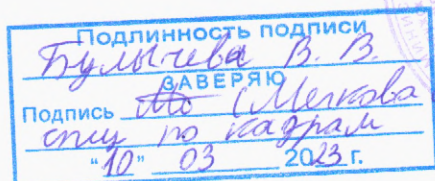 Подлинность подписи
Булычева В. В.
ЗАВЕРЯЮ
Подпись (Мелкова
спец по кадрам
"10" 03 2023 г.